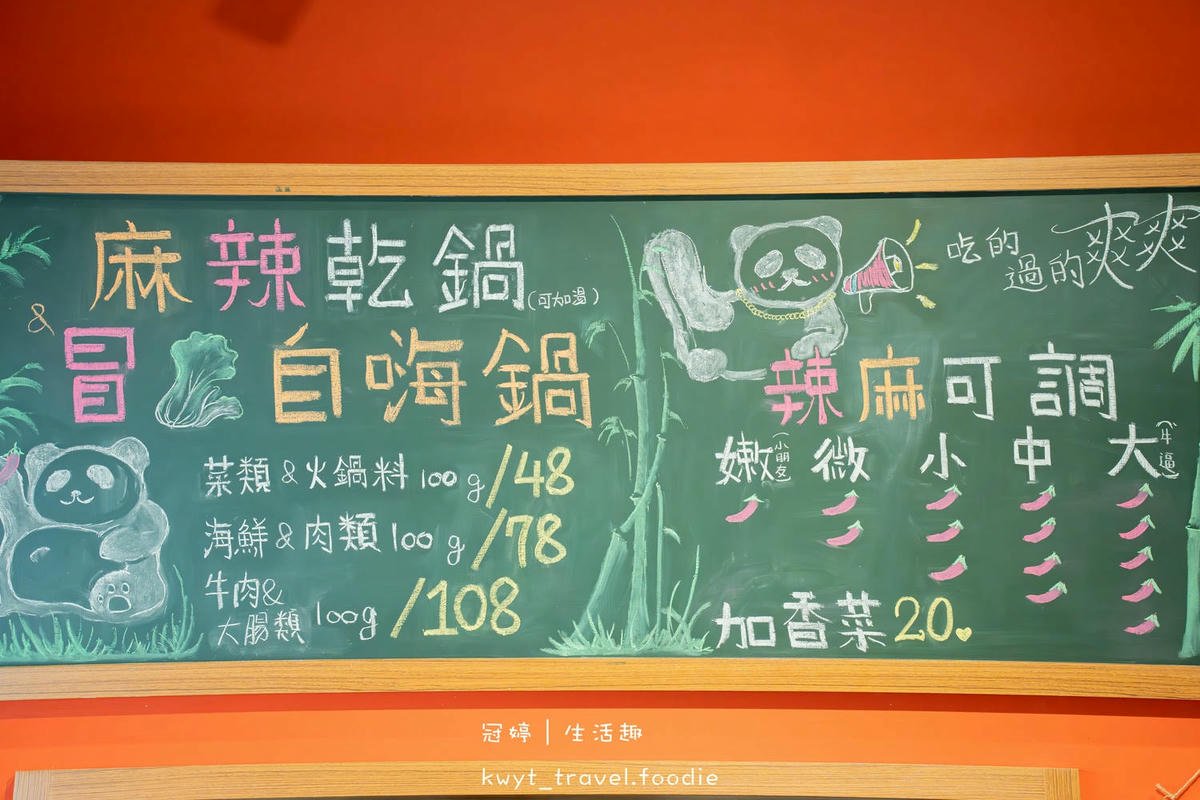 麻辣乾鍋(可加湯)
&
冒 自嗨鍋
菜類&火鍋料 100g/48
海鮮&肉類 100g/78
牛肉&
大腸類 100g/108
吃的
過的爽爽
辣麻可調
嫩(小朋友) 微 小 中 大(牛逼)
加香菜20
冠婷 | 生活趣
kwyt_travel.foodie